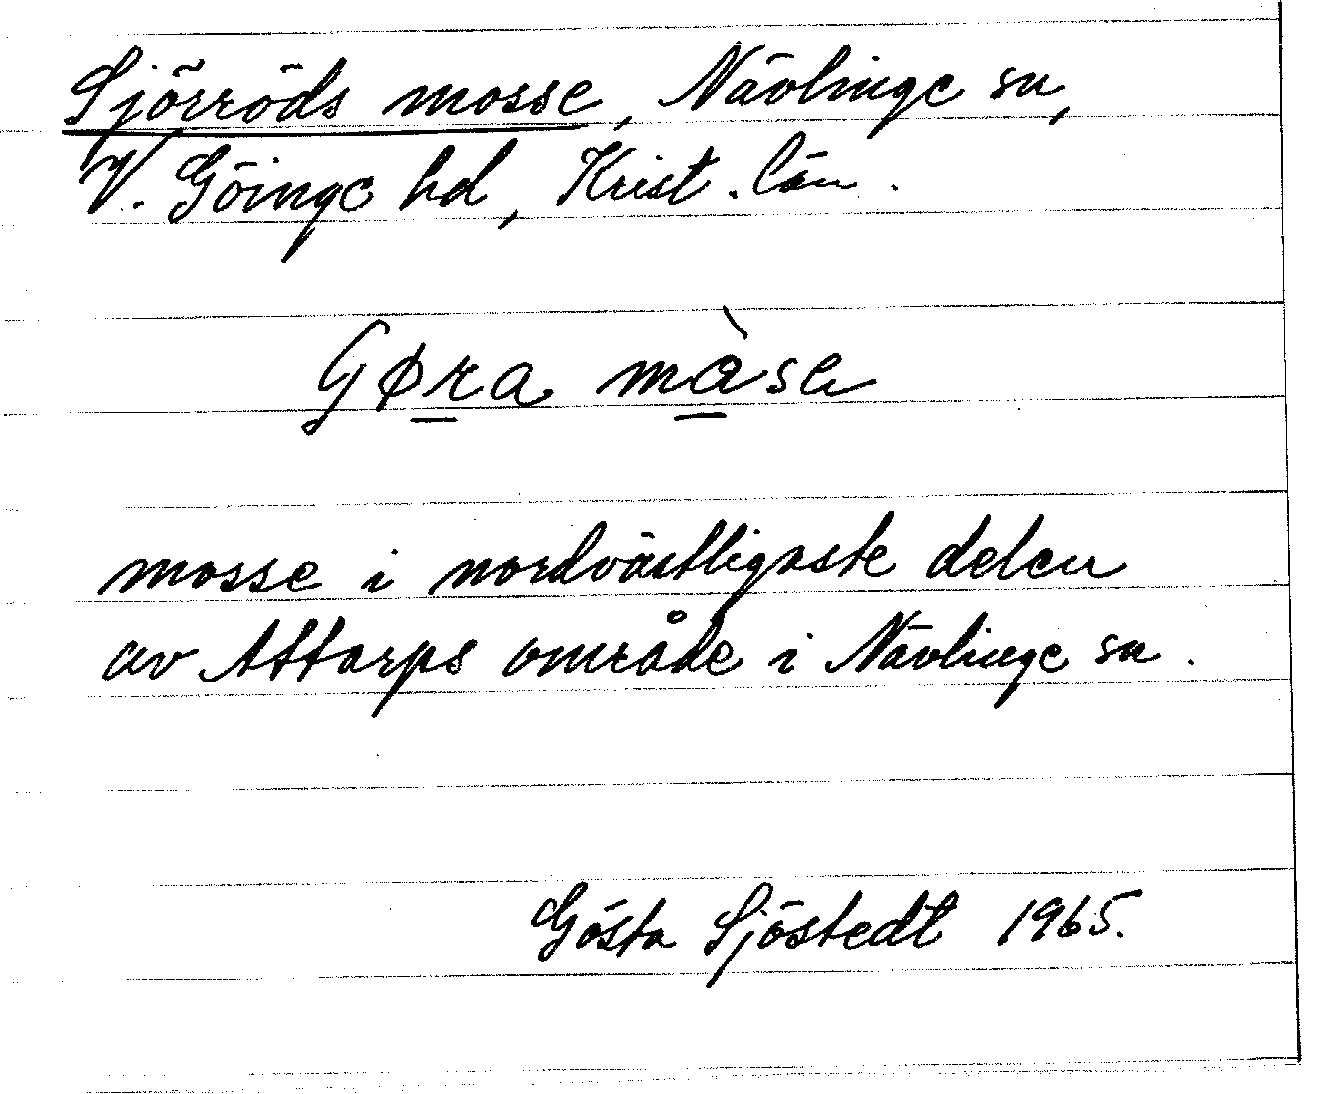 Sjörröds mosse, Nävlinge sn,
V. Göinge hd, Krist. län.
Gøra màsen
mosse i nordvästligaste delen
av Attarps område i Nävlinge sn.
Gösta Sjöstedt 1965.